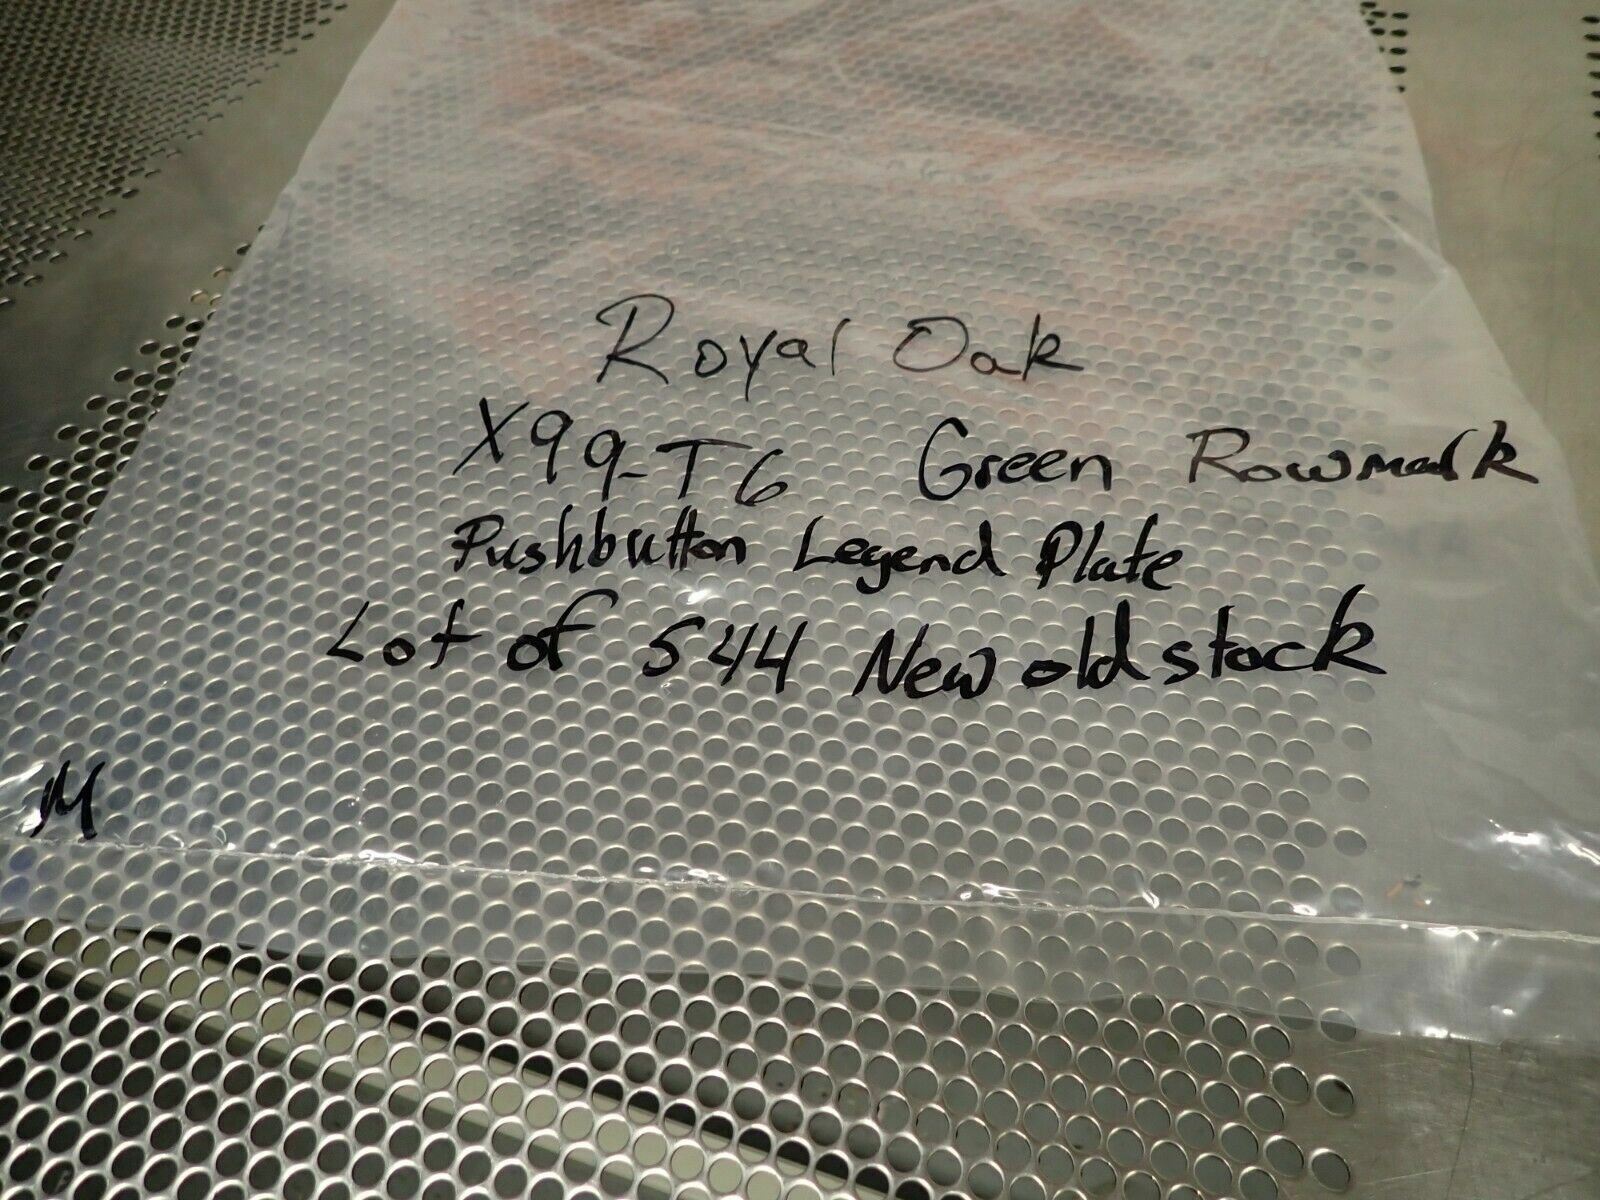 Royal Oak
X99-T6 Green Rowmark
Pushbutton Legend Plate
Lot of 544 New old stock
M